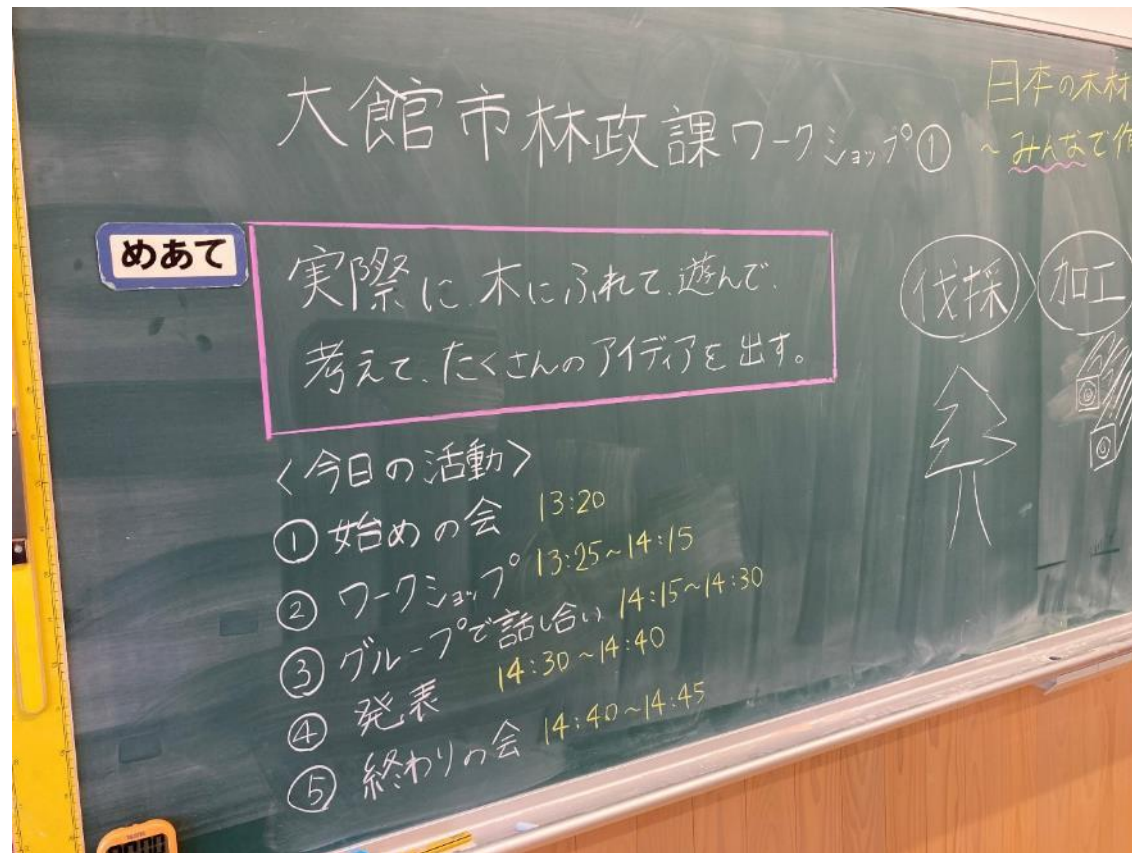 大館市林政課ワークショップ①
日本の木材
~みんなで作
めあて
実際に、木にふれて、遊んで、
考えて、たくさんのアイディアを出す。
伐採
加工
<今日の活動>
①始めの会 13:20
②ワークショップ 13:25~14:15
③グループで話し合い 14:15~14:30
④発表 14:30~14:40
⑤終わりの会 14:40~14:45